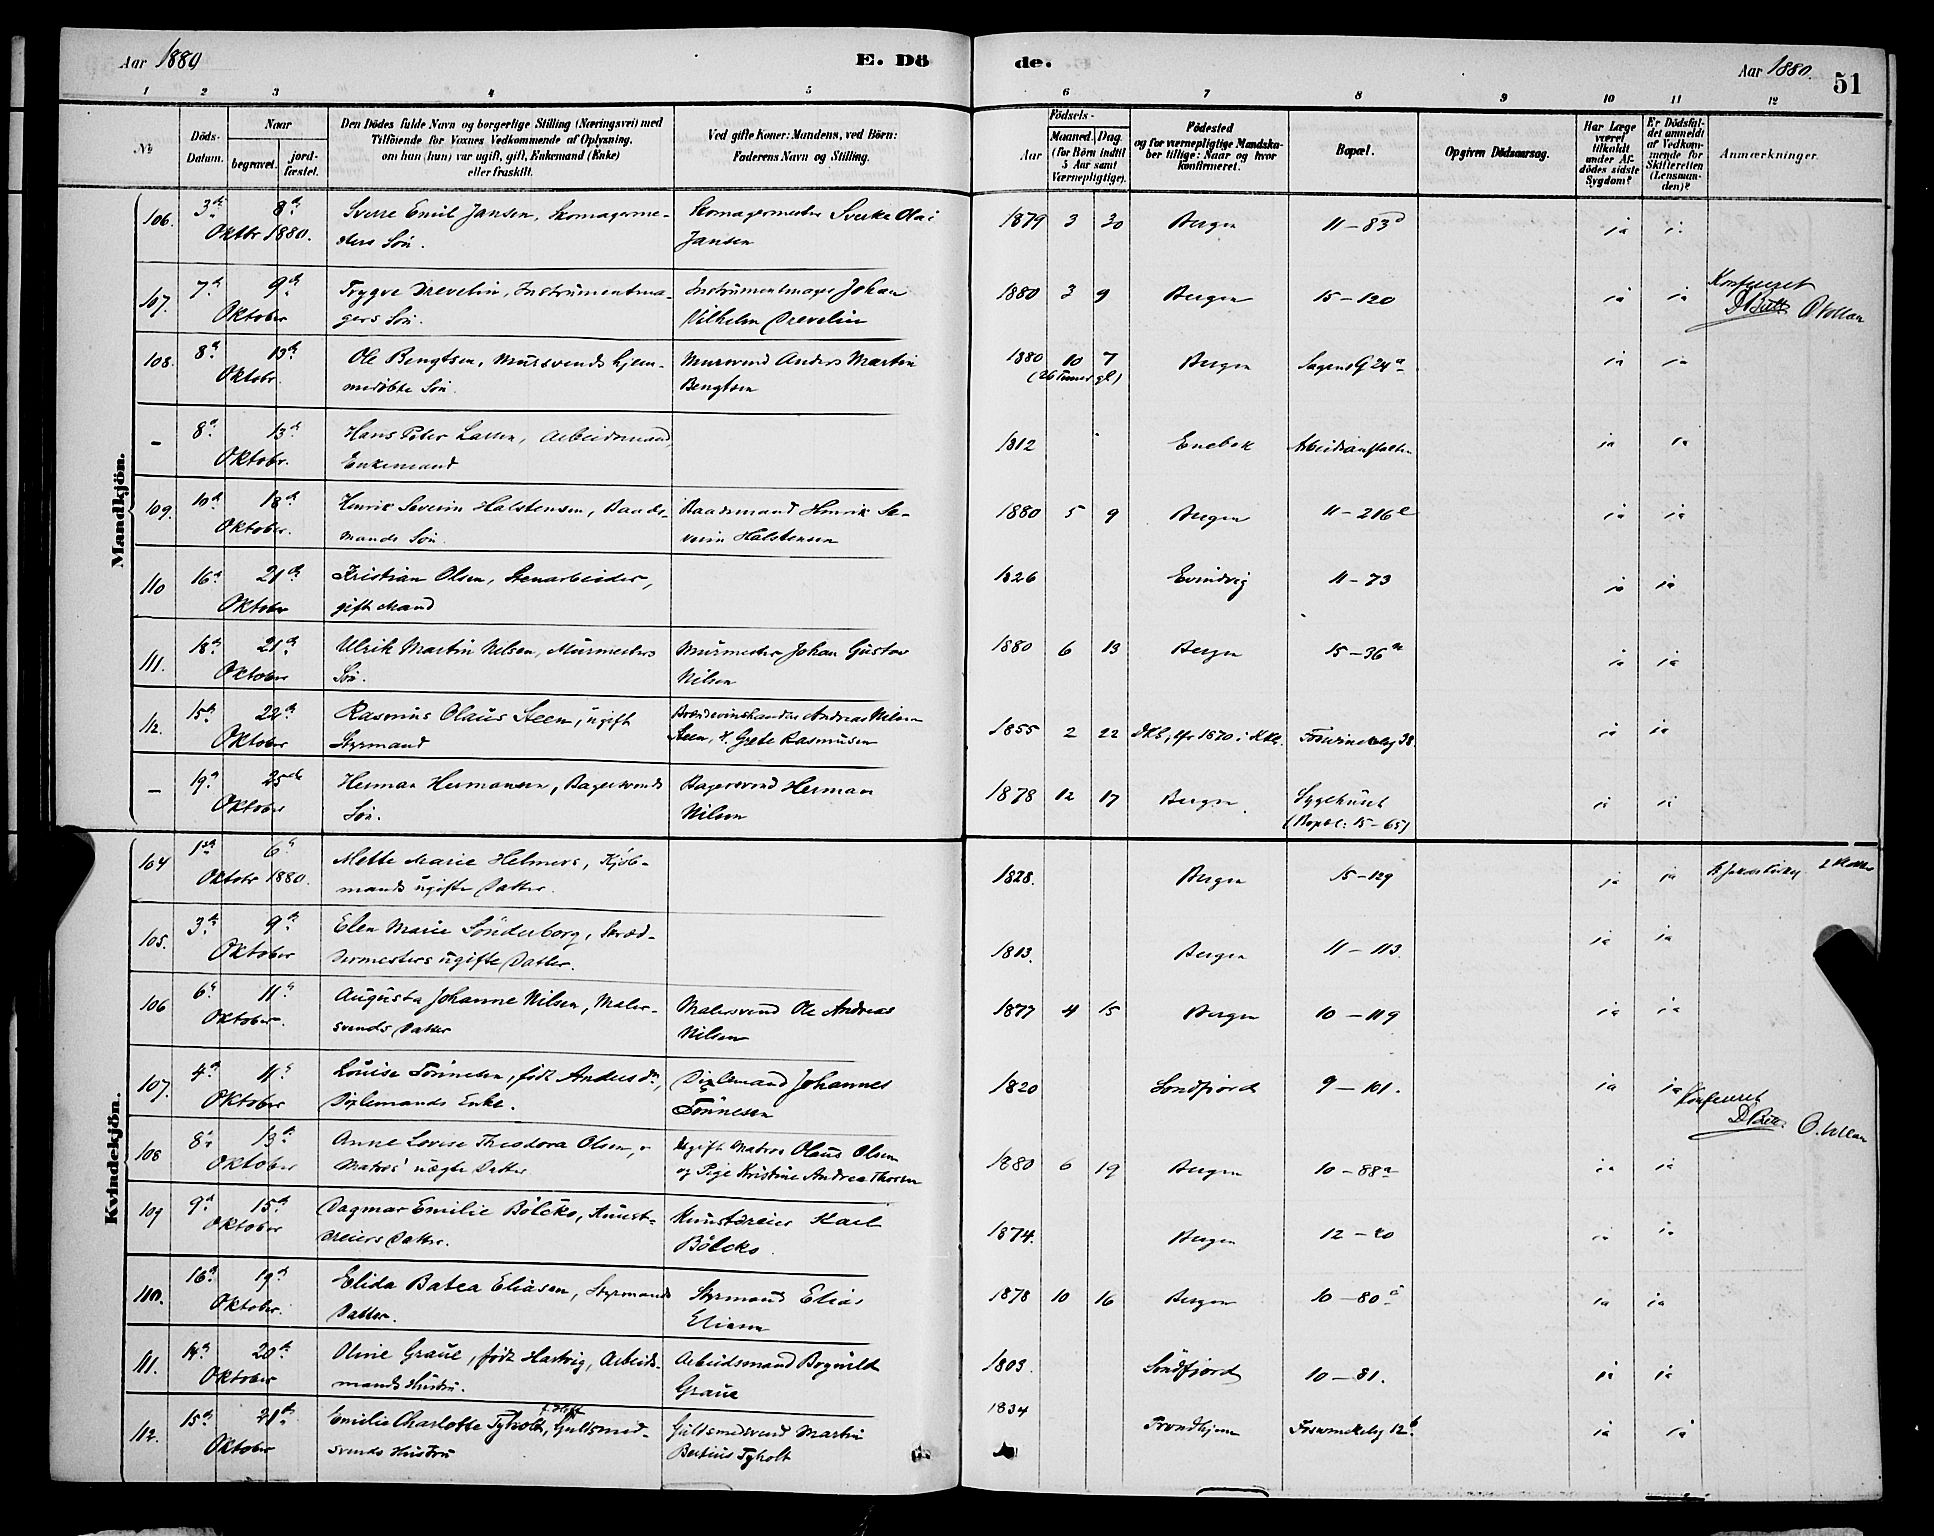 Aar 1880 E. Dö
de. Aar 1880. 51
1 2 3 4 5
6 7 8 9 10 11 12
No
Döds-Datum.
Naar
begravet.
jordfæstet.
Den Dödes fulde Navn og borgerlige Stilling (Næringsvei) med
Tilföiende for Voxnes Vedkommende af Oplysning,
om han (hun) var ugift, gift, Enkemand (Enke)
eller fraskilt.
Ved gifte Koner: Mandens, ved Börn:
Faderens Navn og Stilling.
Födsels-
Aar
Maaned. Dag.
(for Börn indtil
5 Aar samt
Værnepligtige).
Födested
og for værnepligtige Mandskaber tillige: Naar og hvor
konfirmeret.
Bopæl.
Opgiven Dödsaarsag.
Har Læge
været
tilkaldt
under Afdödes sidste
Sygdom?
Er Dödsfaldet anmeldt
af Vedkommende for
Skifteretten
(Lensmanden)?
Anmærkninger.
Mandkjön.
106. 3die 8de Sverre Emil Jansen, Skomagerme- Skomagermester Sverke Olai 1879 3 30 Bergen 11-83d ja ja
Oktbr 1880. sters Sön. Jansen
107. 7de 9de Trygve Drevelin, Instrumentma- Instrumentmager Johan 1880 3 9 Bergen 15-120 ja ja Konfereret
Oktober gers Sön. Vilhelm Drevelin
108. 8de 13de Ole Bengtsen, Mursvends hjem- Mursvend Anders Martin 1880 10 7 Bergen 24a ja ja
Oktobr. medöbte Sön. Bengtsen (26 Timer gl)
- 8de 13de Hans Peter Larsen, Arbeidsmand 1812 Enebak Arbeidsanstalten ja ja
Oktobr. Enkemand
109. 10de 18de Henrik Severin Halstensen, Baads- Baadsmand Henrik Se- 1880 5 9 Bergen 11-216e ja ja
Oktober. mands Sön. verin Halstensen
110 16de 21de Kristian Olsen, Stenarbeider, 1826 Evindvig 11-73 ja ja
Oktober gift Mand
111. 18de 21de Ulrik Martin Nilsen, Murmesters Murmester Johan Gustav 1880 6 13 Bergen 15-36a ja ja
Oktober Sön. Nilsen
112. 15de 22de Rasmus Olaus Steen, ugift Andreas Nilsen 1855 2 22 ja ja
Oktober Styrmand Steen, Grete Rasmusen
- 19de 25de Herman Hermansen, Bagersvends Bagersvend Herman 1878 12 17 Bergen. Sygehuset ja ja
Oktober Sön. Nilsen (Bopæl: 15-65)
Kvindekjön.
104 1ste 6te Mette Marie Helmers, Kjöb- 1828. Bergen 15-129 ja ja
Oktobr 1880. mands ugifte Datter.
105. 3die 9de Elen Marie Sönderborg, Skræd- 1813. Bergen 11-113. ja ja
Oktober dermesters ugifte Datter.
106 6te 11te Augusta Johanne Nilsen, Maler- Malersvend Ole Andreas 1877 4 15 Bergen 10-119 ja ja
Oktober. svends Datter Nilsen
107. 4de 11te Louise Tönnesen, födt Andersdr, Dixlemand Johannes 1820 Söndfjord 9-101. ja ja Konfereret
Oktober Dixlemands Enke. Tönnesen
108 8de 13de Anne Lovise Theodora Olsen, Ugift Matros Olaus Olsen 1880 6 19 Bergen 10-88a ja ja
Oktober Matros' uægte Datter og Pige Kristine Andrea Thorsen
109 9de 15de Dagmar Emilie Bölcko, Kunst- Kunstdreier Karl 1874. Bergen 12-20 ja ja
Oktober dreiers Datter. Bölcko.
110. 16de 19de Elida Batea Eliasen, Styrmands Styrmand Elias 1878 10 16 Bergen 10-80 ja ja
Oktober. Datter. Eliasen
111. 14de 20de Oline Graue, födt Hartvig, Arbeids- Arbeidsmand Bogvild 1803. Söndfjord 10-81. ja ja
Oktober mands Hustru. Graue
112. 15de 21de Emilie Charlotte Tyholt, Guldsmed- Guldsmedsvend Martin 1834 Trondhjem ja ja
Oktober svends Hustru Bertius Tyholt